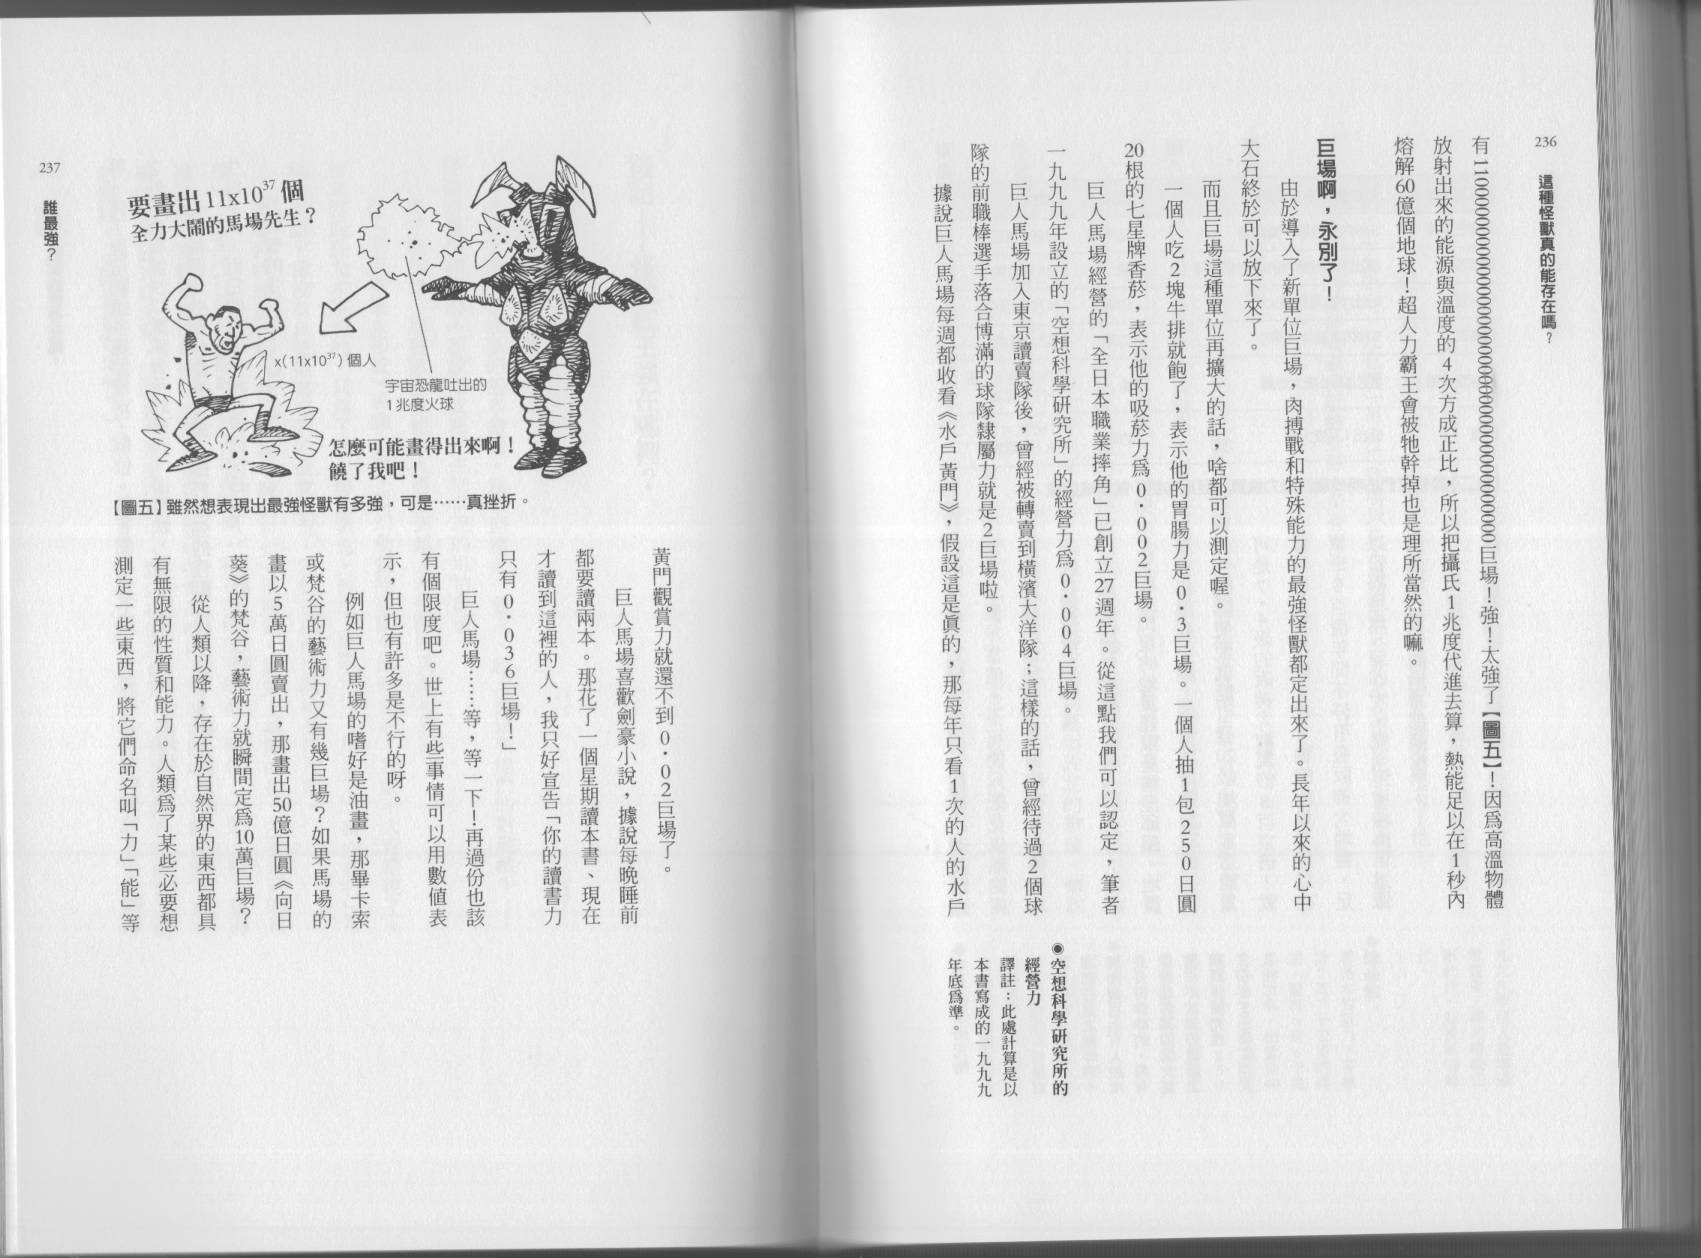 236
這種怪獸真的能存在嗎？
有110000000000000000000000000000000000000巨場！強！太強了【圖五】！因為高溫物體
放射出來的能源與溫度的4次方成正比，所以把攝氏1兆度代進去算，熱能足以在1秒內
熔解60億個地球！超人力霸王會被牠幹掉也是理所當然的嘛。
巨場啊，永別了！
由於導入了新單位巨場，肉搏戰和特殊能力的最強怪獸都定出來了。長年以來的心中
大石終於可以放下來了。
而且巨場這種單位再擴大的話，啥都可以測定喔。
一個人吃2塊牛排就飽了，表示他的胃腸力是0．3巨場。一個人抽1包250日圓
20根的七星牌香菸，表示他的吸菸力為0．002巨場。
巨人馬場經營的「全日本職業摔角」已創立27週年。從這點我們可以認定，筆者
一九九九年設立的「空想科學研究所」的經營力為0．004巨場。
巨人馬場加入東京讀賣隊後，曾經被轉賣到橫濱大洋隊；這樣的話，曾經待過2個球
隊的前職棒選手落合博滿的球隊隸屬力就是2巨場啦。
據說巨人馬場每週都收看《水戶黃門》，假設這是真的，那每年只看1次的人的水戶
◉空想科學研究所的
經營力
譯註：此處計算是以
本書寫成的一九九九
年底為準。
237
誰最強？
要畫出11x10³⁷個
全力大鬧的馬場先生？
x(11x10³⁷)個人
宇宙恐龍吐出的
1兆度火球
怎麼可能畫得出來啊！
饒了我吧！
【圖五】雖然想表現出最強怪獸有多強，可是……真挫折。
黃門觀賞力就還不到0．02巨場了。
巨人馬場喜歡劍豪小說，據說每晚睡前
都要讀兩本。那花了一個星期讀本書、現在
才讀到這裡的人，我只好宣告「你的讀書力
只有0．036巨場！」
巨人馬場……等，等一下！再過份也該
有個限度吧。世上有些事情可以用數值表
示，但也有許多是不行的呀。
例如巨人馬場的嗜好是油畫，那畢卡索
或梵谷的藝術力又有幾巨場？如果馬場的
畫以5萬日圓賣出，那畫出50億日圓《向日
葵》的梵谷，藝術力就瞬間定為10萬巨場？
從人類以降，存在於自然界的東西都具
有無限的性質和能力。人類為了某些必要想
測定一些東西，將它們命名叫「力」「能」等